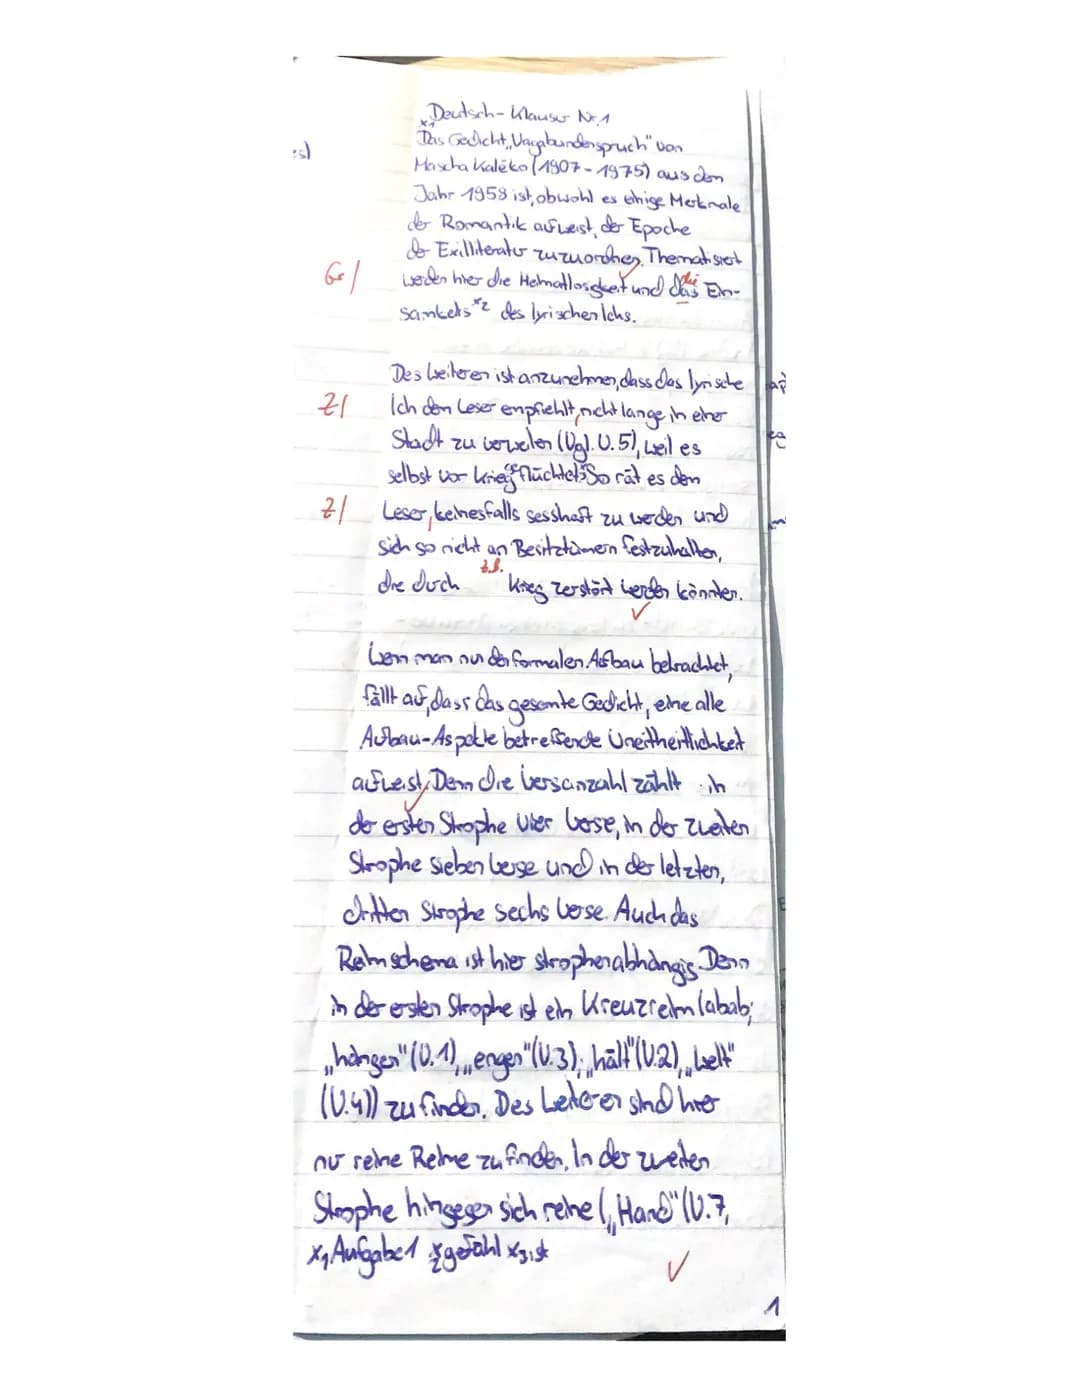 Deutsch-Klausur Nr.1
x1
Das Gedicht „Vagabundenspruch" von
Mascha Kaléko (1907-1975) aus dem
Jahr 1958 ist, obwohl es einige Merkmale
der Romantik aufweist, der Epoche
der Exilliteratur zuzuordnen. Thematisiert
Gr/ werden hier die Heimatlosigkeit und das die Ein-
samkeits x2 des lyrischen Ichs.
Des Weiteren ist anzunehmen, dass das lyrische
Z/ Ich den Leser empfiehlt, nicht lange in einer
Stadt zu verweilen (Vgl. V.5), weil es
selbst vor Krieg geflüchtet x3 So rät es den
Z/ Leser, keinesfalls sesshaft zu werden und
sich so nicht an Besitztümern festzuhalten,
die durch z.B. Krieg zerstört werden könnten.
Wenn man nun den formalen Aufbau betrachtet,
fällt auf, dass das gesamte Gedicht, eine alle
Aufbau-Aspekte betreffende Uneinheitlichkeit
aufweist. Denn die Versanzahl zählt in
der ersten Strophe vier Verse, in der zweiten
Strophe sieben Verse und in der letzten,
dritten Strophe sechs Verse. Auch das
Reimschema ist hier strophenabhängig. Denn
in der ersten Strophe ist ein Kreuzreim (abab;
„hängen" (V.1), „engen" (V.3); „hält" (V.2), „Welt"
(V.4)) zu finden. Des Weiteren sind hier
nur reine Reime zu finden. In der zweiten
Strophe hingegen sich reine („Hand" (V.7,
x1 Aufgabe 1 x2 gefühl x3 ist
1